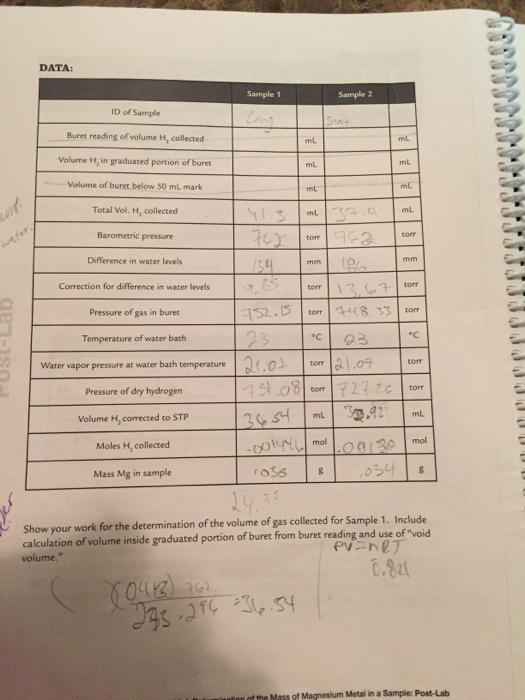 DATA:
Sample 1 Sample 2
ID of Sample Long Short
Buret reading of volume H, collected mL mL
Volume H, in graduated portion of buret mL mL
Volume of buret below 50 mL mark mL mL
Total Vol. H, collected 41.3 mL 37.9 mL
water.
Barometric pressure 762 torr 762 torr
Difference in water levels 134 mm 186 mm
Correction for difference in water levels 9.85 torr 13.67 torr
Pressure of gas in buret 752.15 torr 748.33 torr
Temperature of water bath 23 °C 23 °C
Water vapor pressure at water bath temperature 21.07 torr 21.07 torr
Pressure of dry hydrogen 731.08 torr 727.26 torr
Volume H, corrected to STP 36.54 mL mL
Moles H, collected .001446 mol .00130 mol
Mass Mg in sample .035 g .034 g
Post-Lab
24.3
Show your work for the determination of the volume of gas collected for Sample 1. Include
calculation of volume inside graduated portion of buret from buret reading and use of "void
volume."
PV=nRT
0.821
762
.296 =36.54
Mass of Magnesium Metal in a Sample: Post-Lab